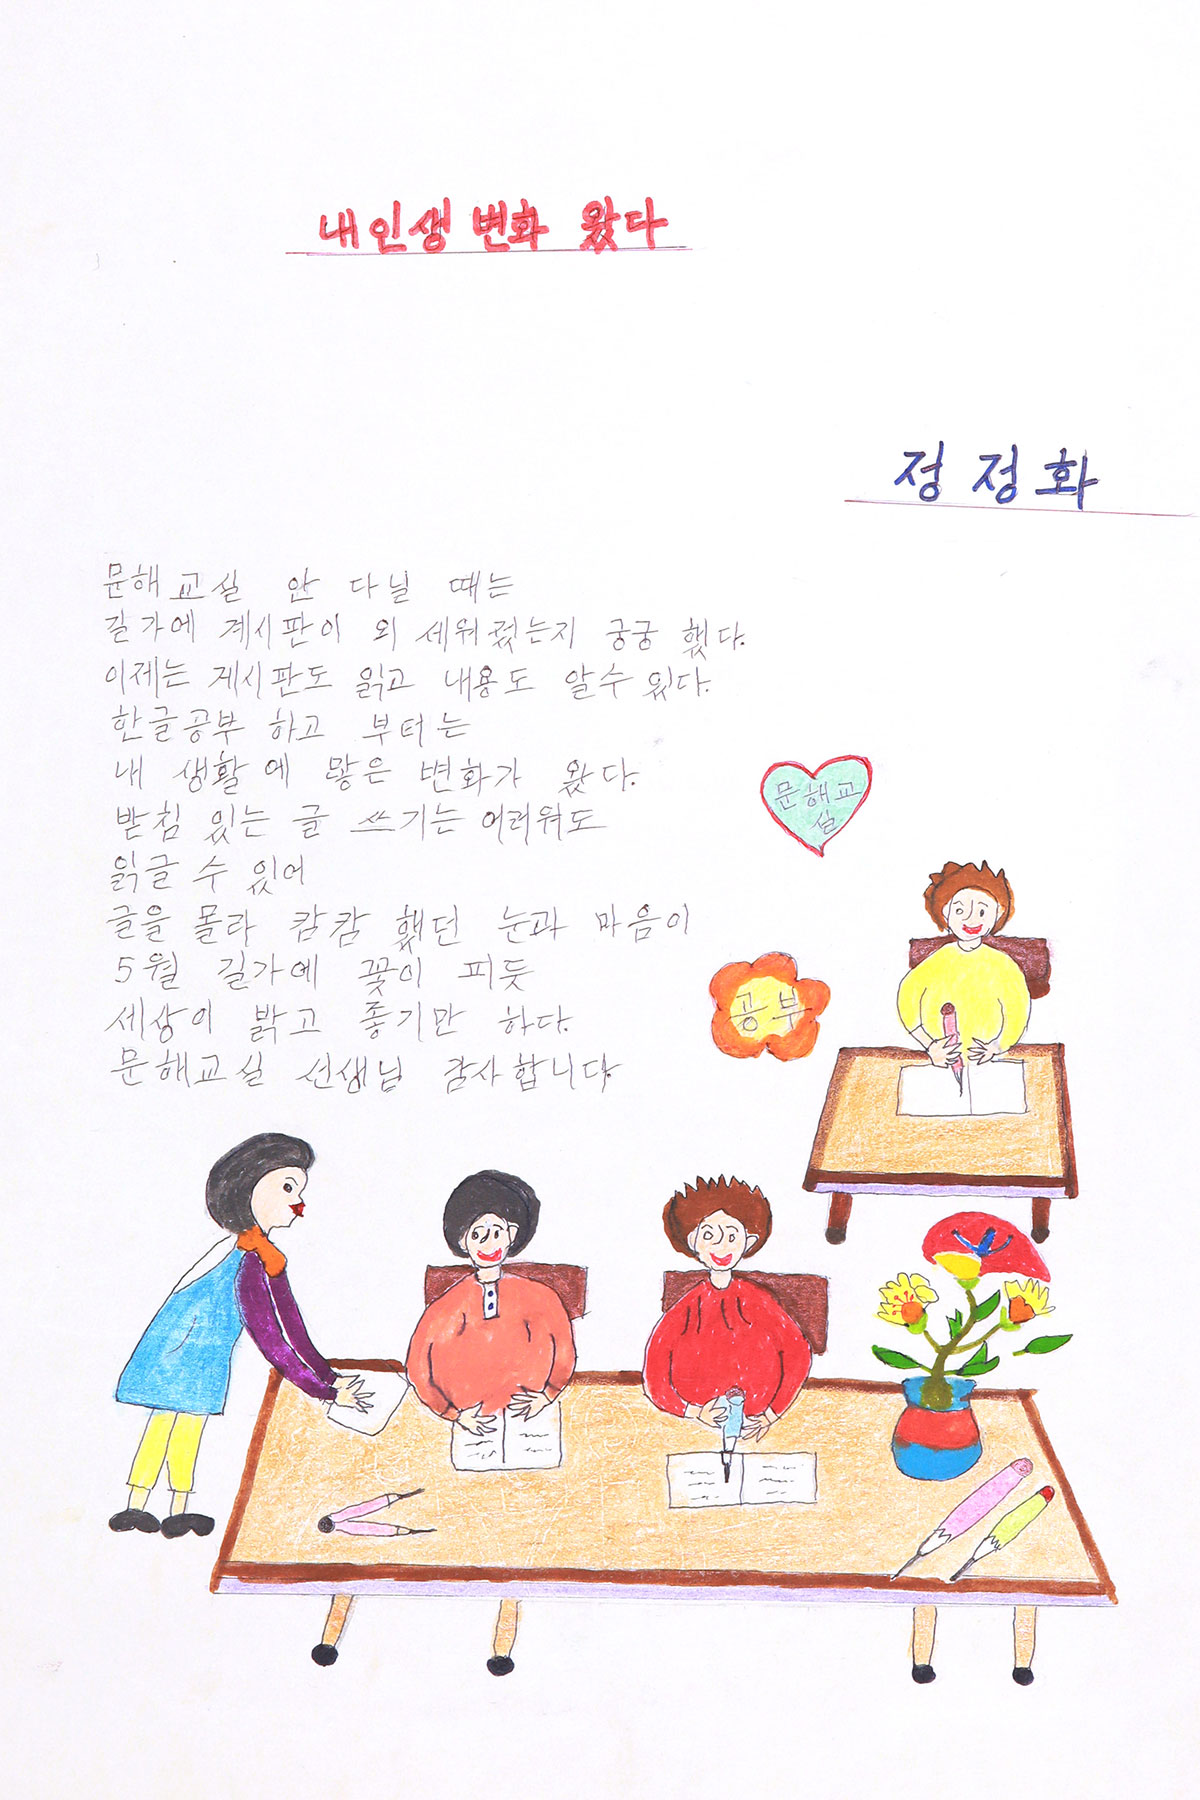 내 인생 변화 왔다
정정화
문해교실 안 다닐 때는
길가에 계시판이 외 세워젔는지 궁궁 했다.
이제는 게시판도 읽고 내용도 알수 있다.
한글공부 하고 부터는
내 생활에 많은 변화가 왔다.
받침 있는 글 쓰기는 어러워도
읽글 수 있어
글을 몰라 캄캄 했던 눈과 마음이
5월 길가에 꽃이 피듯
세상이 밝고 좋기만 하다.
문해교실 선생님 감사합니다
문해교
실
공부